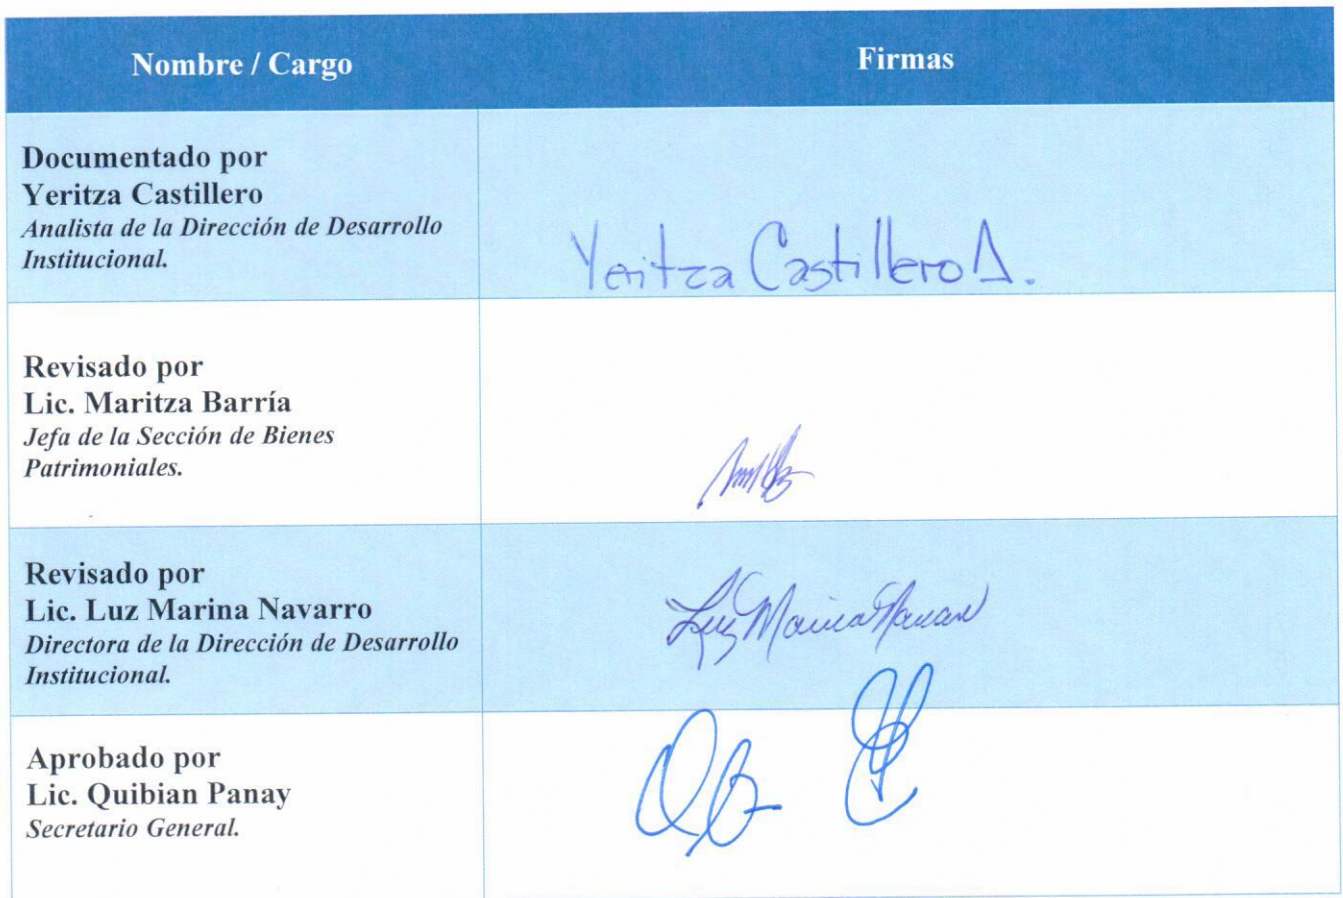 Nombre / Cargo
Firmas
Documentado por
Yeritza Castillero
Analista de la Dirección de Desarrollo
Institucional.
Yeritza Castillero A.
Revisado por
Lic. Maritza Barría
Jefa de la Sección de Bienes
Patrimoniales.
Revisado por
Lic. Luz Marina Navarro
Directora de la Dirección de Desarrollo
Institucional.
Luz Marina Navarro
Aprobado por
Lic. Quibian Panay
Secretario General.